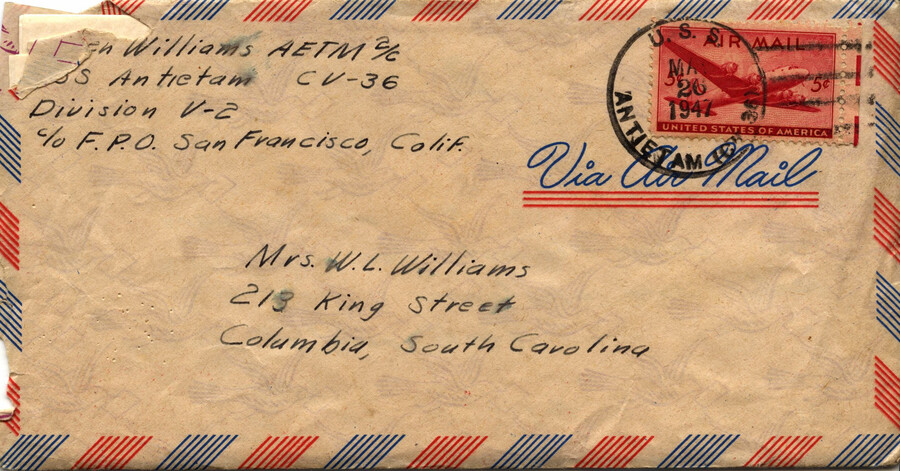 Williams AETM 2/c
Antietam CV-36
Division V-2
c/o F.P.O. San Francisco, Calif.
U. S. S.
20
1947
ANTIETAM
AIR MAIL
5¢ 5¢
UNITED STATES OF AMERICA
Via Air Mail
Mrs. W.L. Williams
213 King Street
Columbia, South Carolina